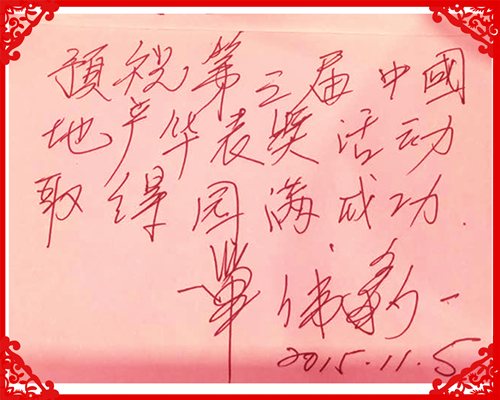 預祝第三届中國
地产华表奖活动
取得园满成功.
单伟新
2015.11.5